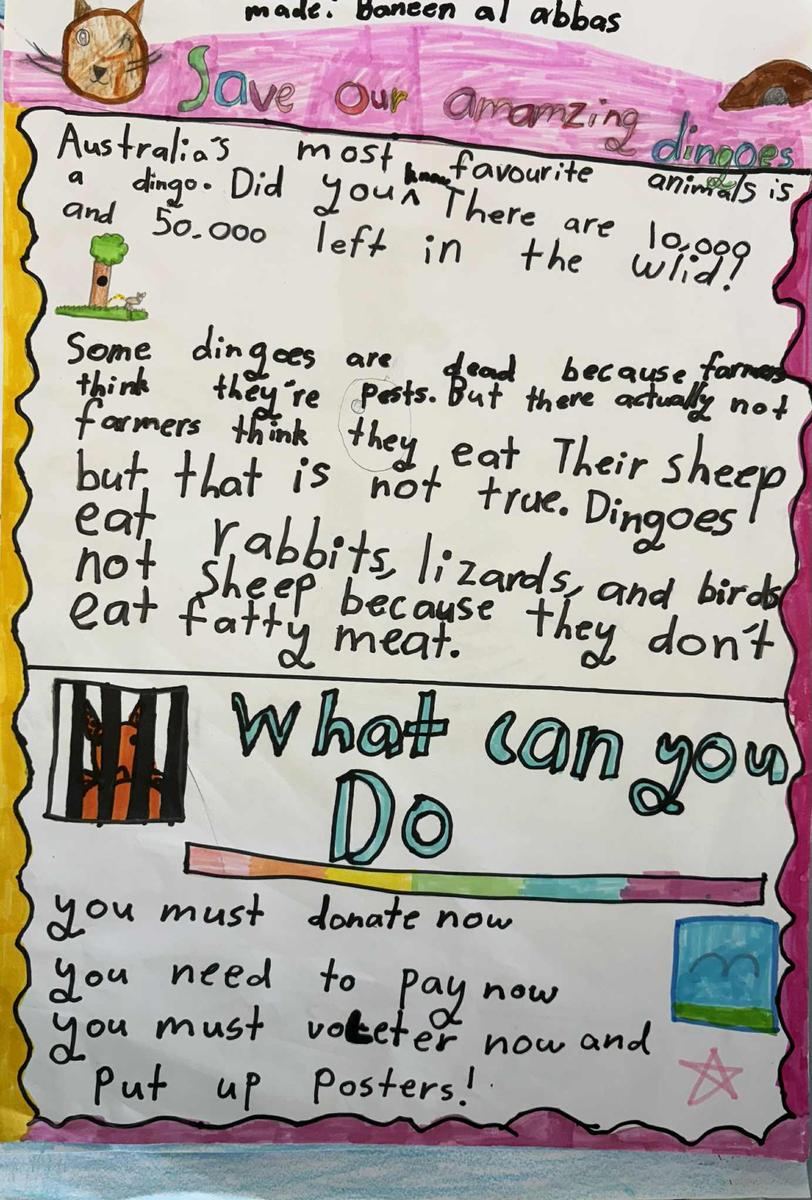 made: Baneen al abbas
Save our amamzing dingoes
Australia's most favourite animals is
a dingo. Did you know There are 10,000
and 50.000 left in the wlid!
Some dingoes are dead because farmers
think they're pests. But there actually not
farmers think they eat Their sheep
but that is not true. Dingoes
eat rabbits, lizards, and birds
not sheep because they don't
eat fatty meat.
What can you
Do
you must donate now
you need to pay now
you must now and
put up posters!